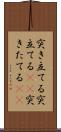 突き立てる突
立てる突
きたてる